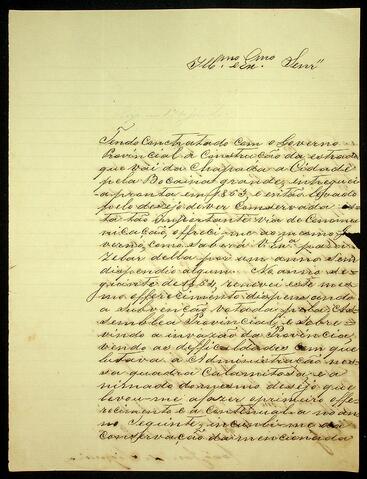 Illmo. Exmo. Senr.
Tendo Contractado Com o Governo
Provincial a Construcção da estrada
que vai da Chapada a Cidade
pela Bocaina grande, entreguei-
a prompta em 1863, e então levado
pelo desejo de ver Conservada es-
ta tão importante via de Commu-
nicação, offereci-me ao mesmo Go-
verno, como saberá V. Exa. para
Zelar della por um anno sem
dispendio algum. No anno se-
guinte de 1864, renovei este mes-
mo offerecimento dispensando
a subvenção votada pela As-
semblea Provincial; e sobre-
vindo a invazão da Provincia,
vendo as difficuldades com que
lutava a Administração nes-
sa quadra Calamitosa e a-
nimado do mesmo desejo que
levou-me a fazer o primeiro offe-
recimento e a Continual-o no an-
no seguinte, incumbi-me da
Conservação da mencionada